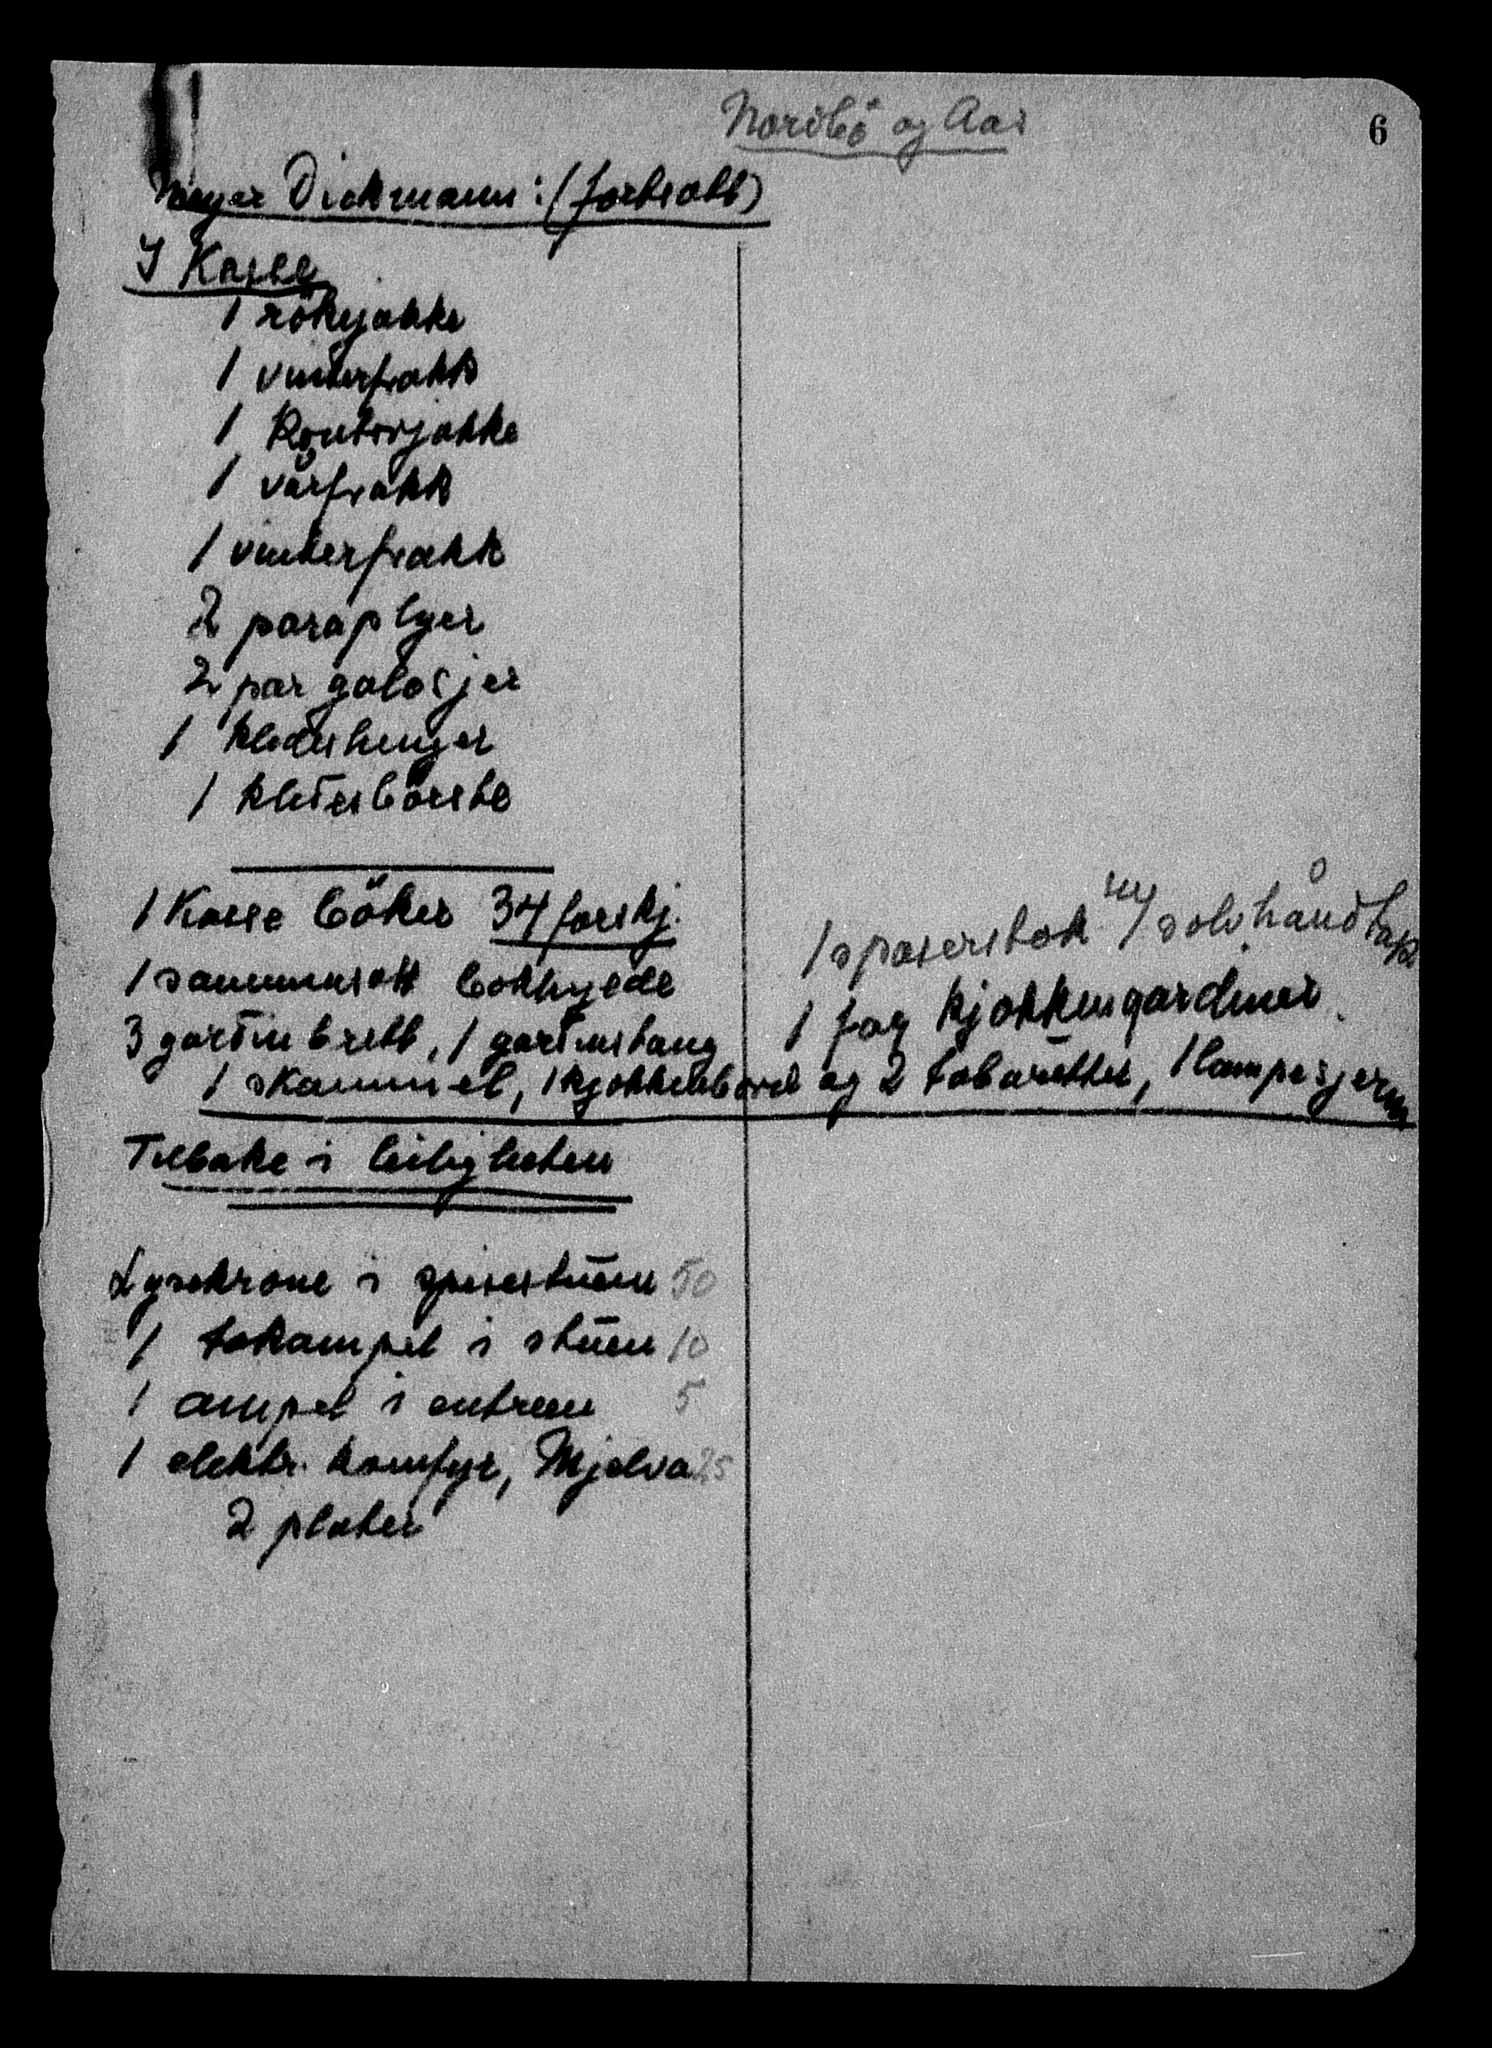 Nordbö og Aas
6
Meyer Dickmann: (fortsatt)
I Kasse
1 rökejakke
1 vinterfrakk
1 Kontorjakke
1 vårfrakk
1 vinterfrakk
2 paraplyer
2 par galosjer
1 kleshenger
1 klesbörste
1 Kasse böker 34 forskj.
1 sammensatt bokhylde
3 gardinbrett, 1 gardinstang
1 spaserstok m/ sølvhåndtak
1 fag kjøkkengardiner.
1 skammel, 1 kjøkkenbord og 2 taburetter, 1 lampeskjerm
Tilbake i leiligheten
Lysekrone i spisestuen 50
1 takampel i stuen 10
1 ampel i entreen 5
1 elektr. komfyr, Mjølva 25
2 plater